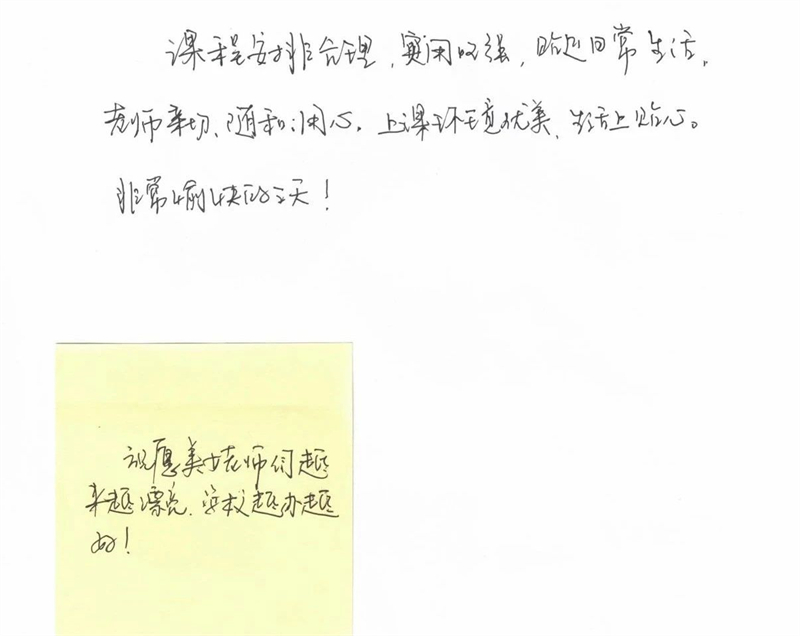 课程安排合理，实用性强，贴近日常生活，
老师亲切、随和、用心，上课环境优美、生活上贴心。
非常愉快的三天！
祝愿美女老师们越
来越漂亮，学校越办越
好！